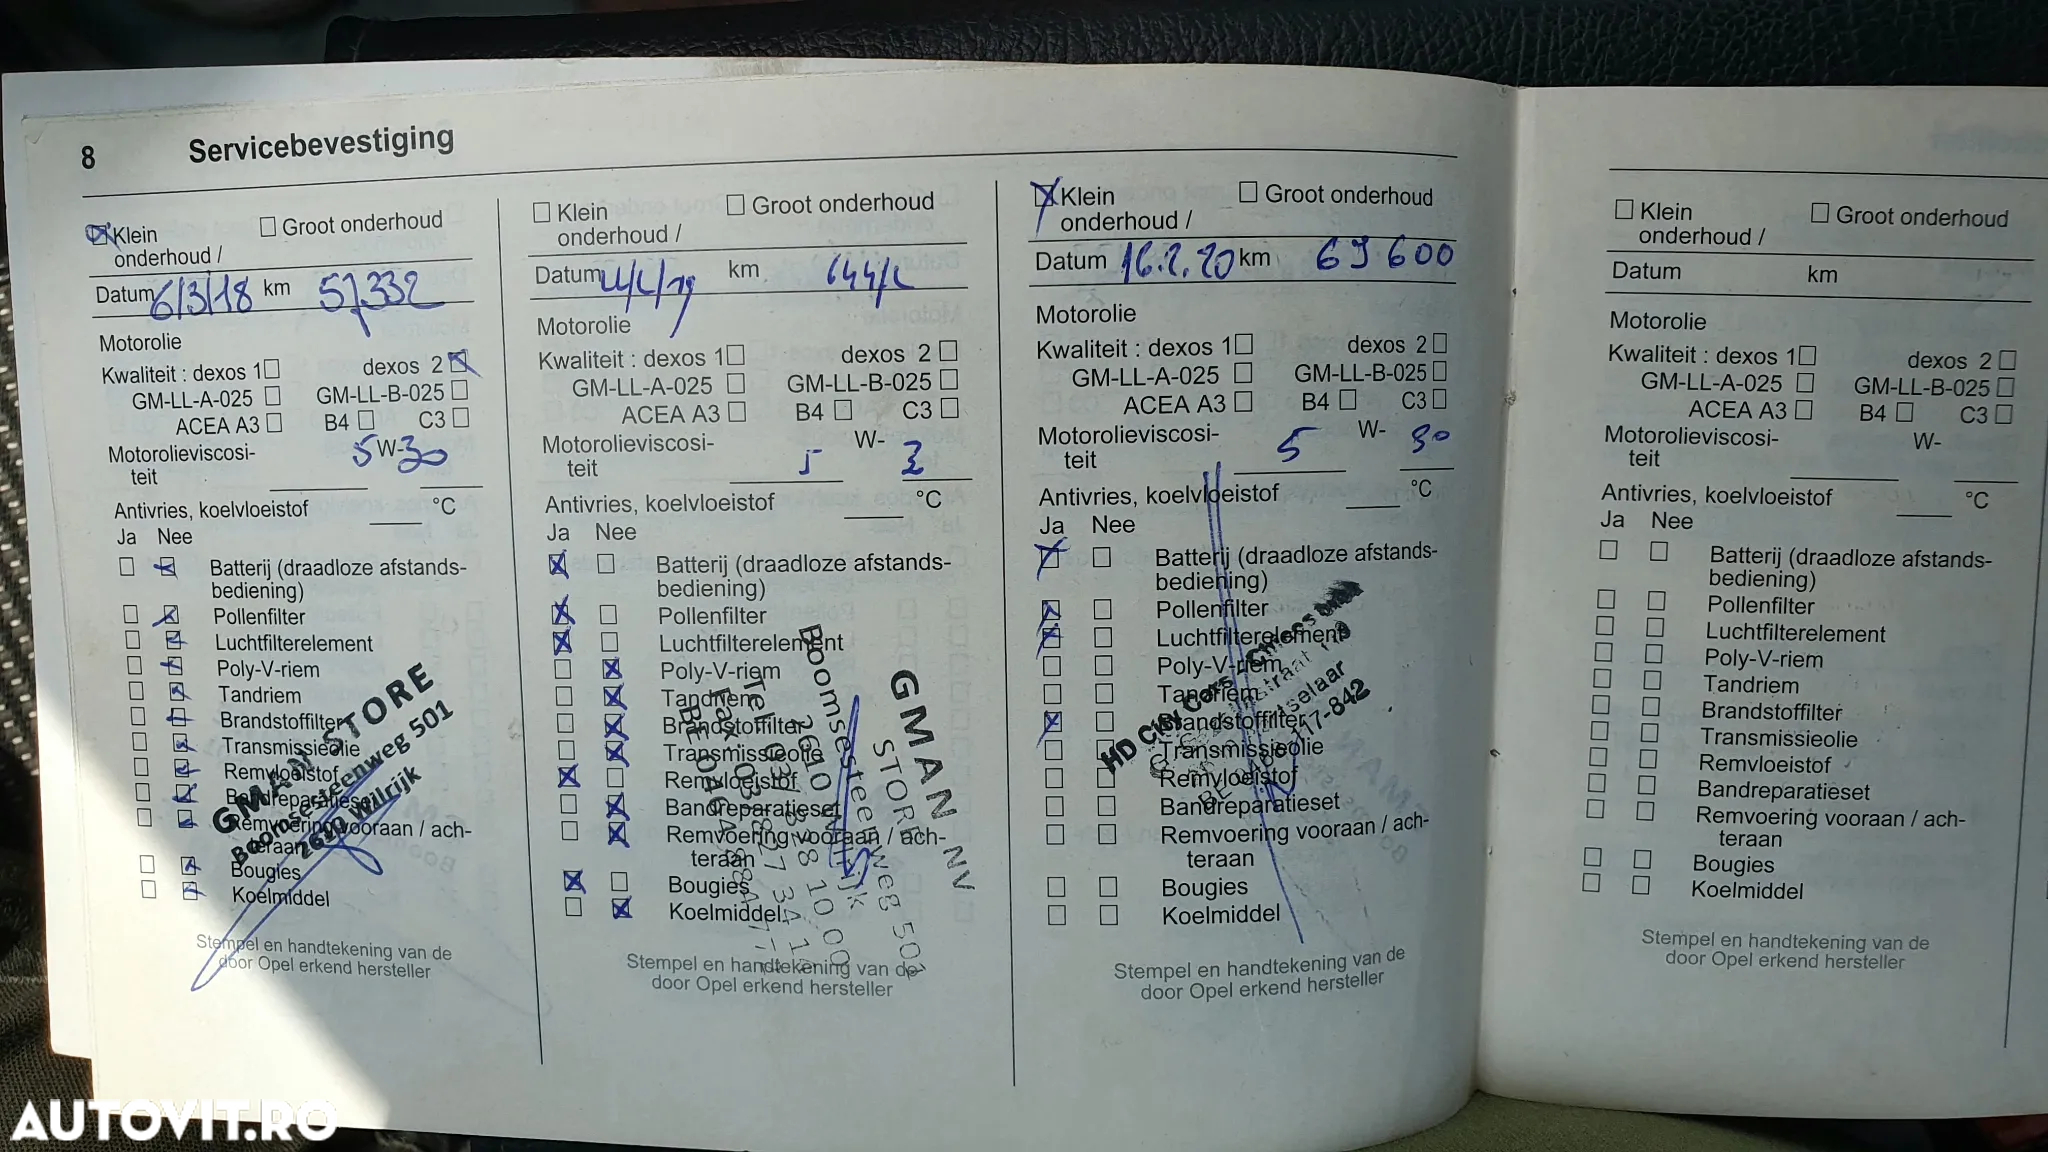 8 Servicebevestiging
Klein onderhoud /
Groot onderhoud
Datum 6/3/18 km 57.332
Motorolie
Kwaliteit : dexos 1 dexos 2
GM-LL-A-025 GM-LL-B-025
ACEA A3 B4 C3
Motorolieviscosi-
teit 5 W-30
Antivries, koelvloeistof °C
Ja Nee
Batterij (draadloze afstands-
bediening)
Pollenfilter
Luchtfilterelement
Poly-V-riem
Tandriem
Brandstoffilter
Transmissieolie
Remvloeistof
Bandreparatieset
Remvoering vooraan / ach-
teraan
Bougies
Koelmiddel
GMAN STORE
Boomsesteenweg 501
2610 Wilrijk
Stempel en handtekening van de
door Opel erkend hersteller
Klein
onderhoud /
Groot onderhoud
Datum km
Motorolie
Kwaliteit : dexos 1 dexos 2
GM-LL-A-025 GM-LL-B-025
ACEA A3 B4 C3
Motorolieviscosi-
teit 5 W-
Antivries, koelvloeistof °C
Ja Nee
Batterij (draadloze afstands-
bediening)
Pollenfilter
Luchtfilterelement
Poly-V-riem
Tandriem
Brandstoffilter
Transmissieolie
Remvloeistof
Bandreparatieset
Remvoering vooraan / ach-
teraan
Bougies
Koelmiddel
GMAN NV
STORE
Boomsesteenweg 501
2610
Stempel en handtekening van de
door Opel erkend hersteller
Klein
onderhoud /
Groot onderhoud
Datum 16.2.20 km 69600
Motorolie
Kwaliteit : dexos 1 dexos 2
GM-LL-A-025 GM-LL-B-025
ACEA A3 B4 C3
Motorolieviscosi-
teit 5 W- 30
Antivries, koelvloeistof °C
Ja Nee
Batterij (draadloze afstands-
bediening)
Pollenfilter
Luchtfilterelement
Poly-V-riem
Tandriem
Brandstoffilter
Transmissieolie
Remvloeistof
Bandreparatieset
Remvoering vooraan / ach-
teraan
Bougies
Koelmiddel
HD City Cars
Stempel en handtekening van de
door Opel erkend hersteller
Klein
onderhoud /
Groot onderhoud
Datum km
Motorolie
Kwaliteit : dexos 1 dexos 2
GM-LL-A-025 GM-LL-B-025
ACEA A3 B4 C3
Motorolieviscosi-
teit W-
Antivries, koelvloeistof °C
Ja Nee
Batterij (draadloze afstands-
bediening)
Pollenfilter
Luchtfilterelement
Poly-V-riem
Tandriem
Brandstoffilter
Transmissieolie
Remvloeistof
Bandreparatieset
Remvoering vooraan / ach-
teraan
Bougies
Koelmiddel
Stempel en handtekening van de
door Opel erkend hersteller
AUTOVIT.RO